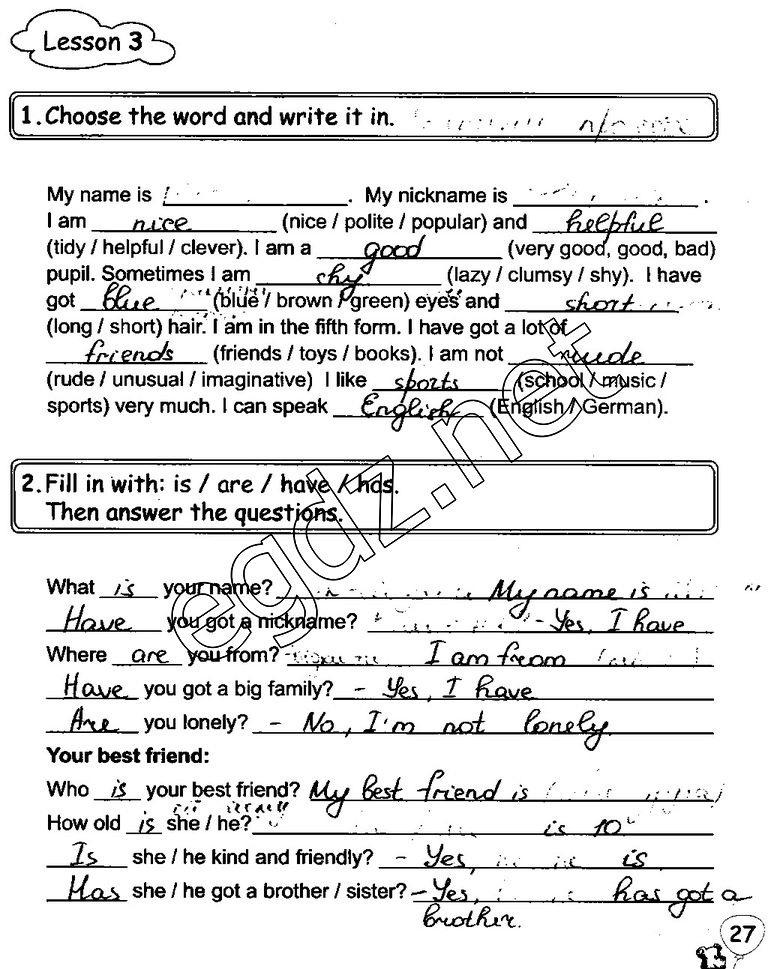 Lesson 3
1. Choose the word and write it in.
My name is ____. My nickname is ____.
I am nice (nice / polite / popular) and helpful
(tidy / helpful / clever). I am a good (very good, good, bad)
pupil. Sometimes I am chy (lazy / clumsy / shy). I have
got blue (blue / brown / green) eyes and short
(long / short) hair. I am in the fifth form. I have got a lot of
friends (friends / toys / books). I am not rude
(rude / unusual / imaginative) I like sports (school / music /
sports) very much. I can speak English (English / German).
2. Fill in with: is / are / have / has.
Then answer the questions.
What is your name? My name is
Have you got a nickname? - Yes, I have
Where are you from? I am from
Have you got a big family? - Yes, I have
Are you lonely? - No, I'm not lonely.
Your best friend:
Who is your best friend? My best friend is
How old is she / he? is 10
Is she / he kind and friendly? - Yes, is
Has she / he got a brother / sister? - Yes, has got a
brother.
27
egdz.net